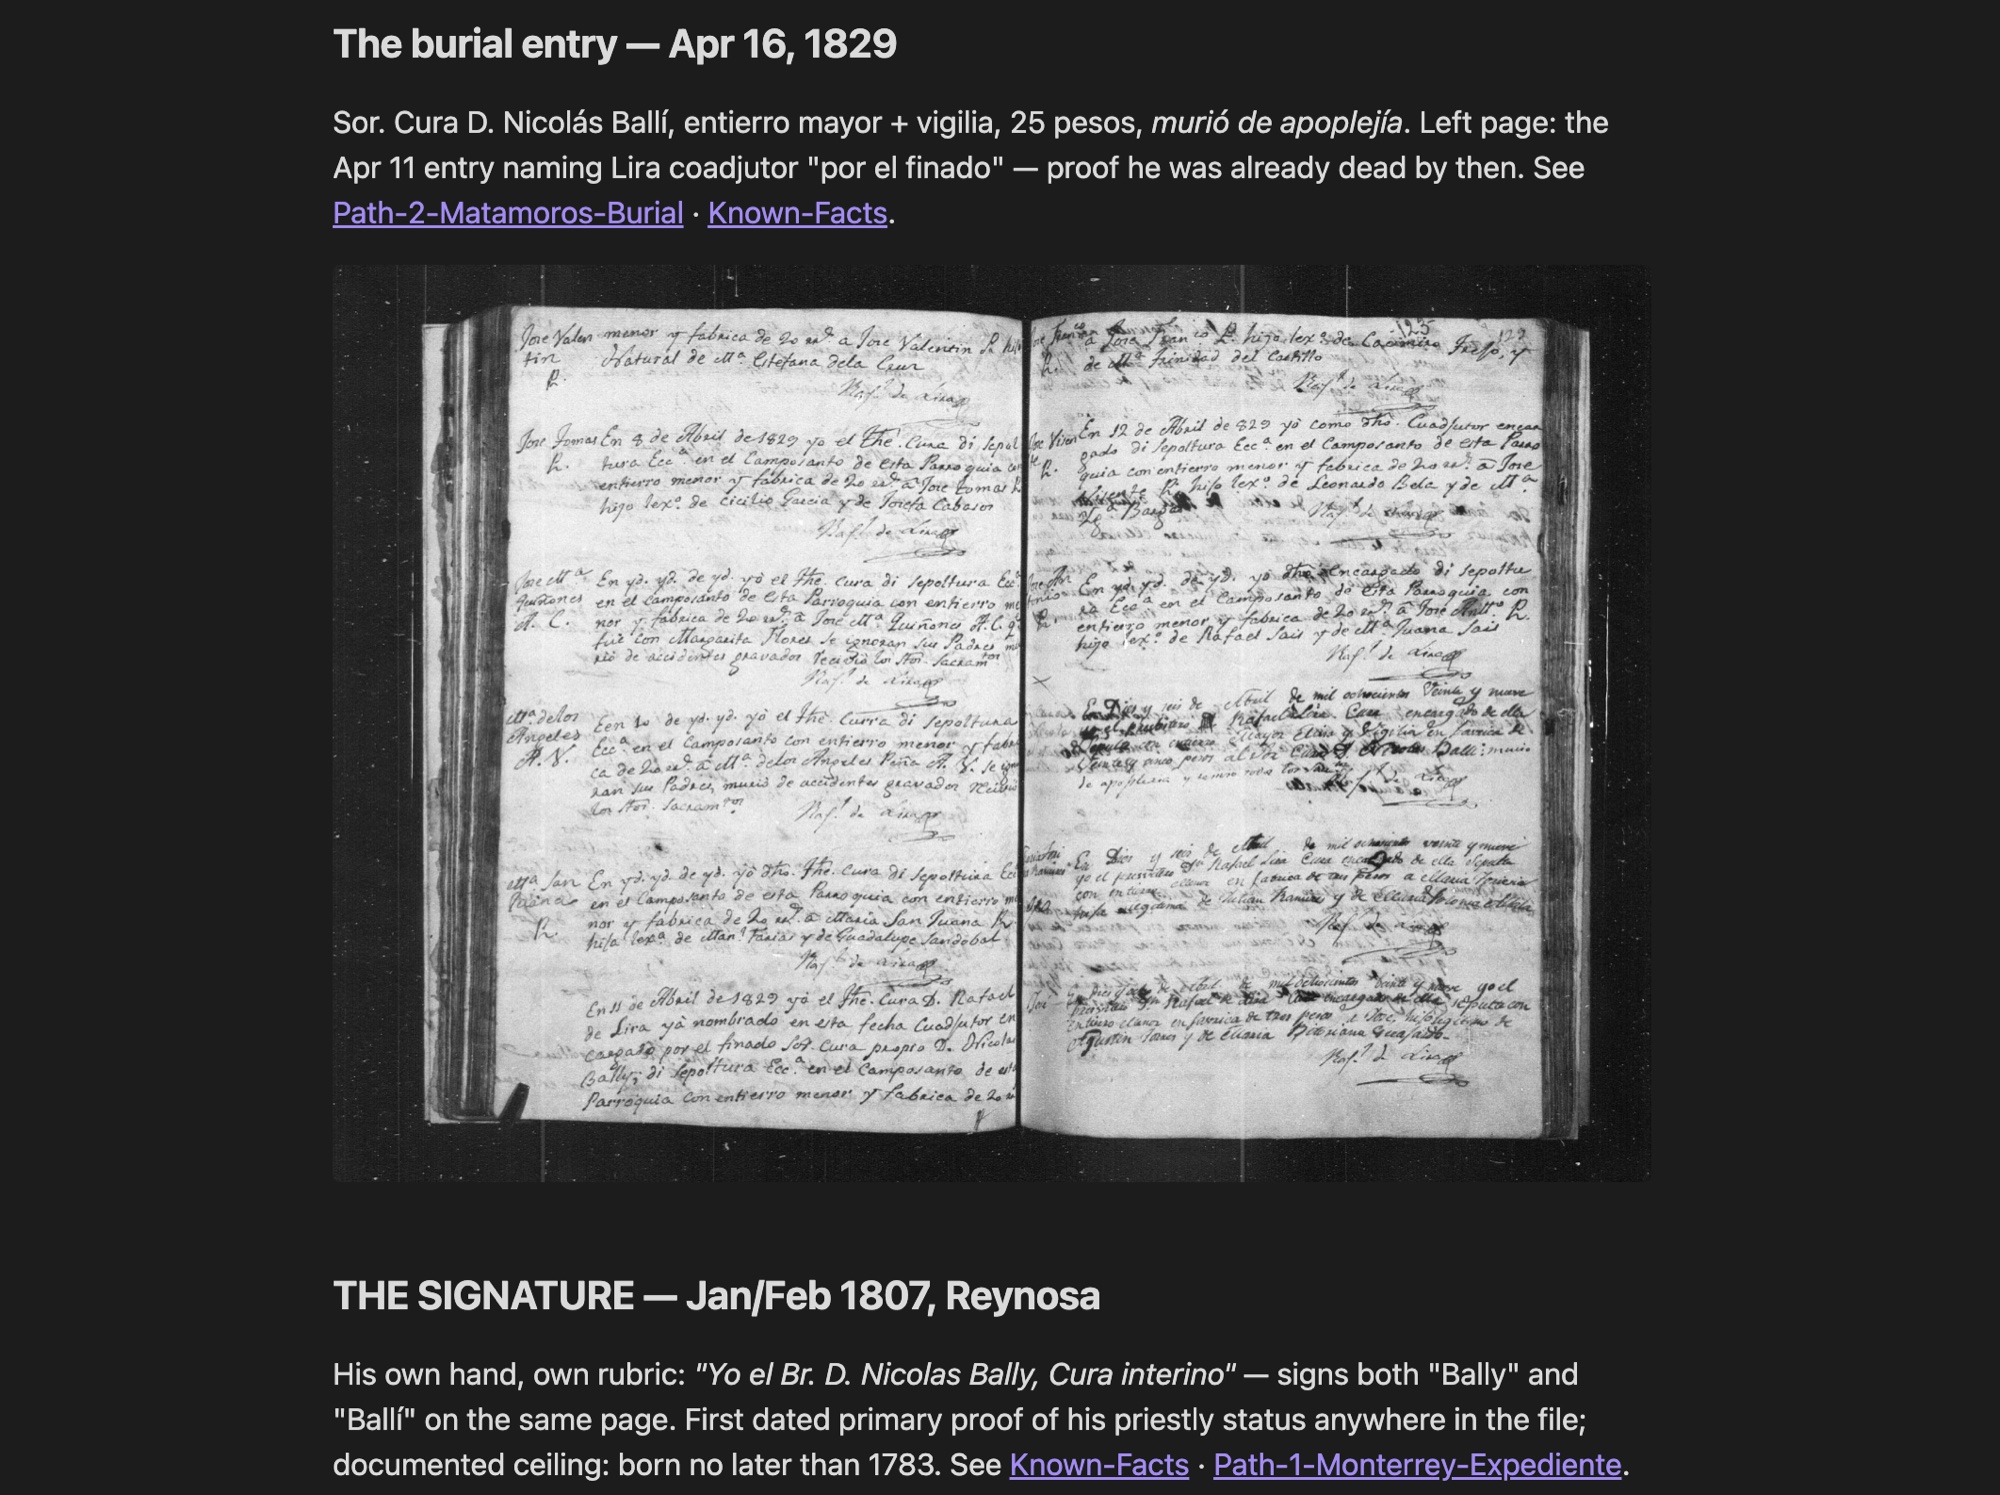 The burial entry — Apr 16, 1829
Sor. Cura D. Nicolás Ballí, entierro mayor + vigilia, 25 pesos, murió de apoplejía. Left page: the
Apr 11 entry naming Lira coadjutor "por el finado" — proof he was already dead by then. See
Path-2-Matamoros-Burial · Known-Facts.
Jose Valen
tin
P.
menor y fabrica de 20 rr.s a Jose Valentin P. hijo
Natural de M.a Estefana dela Cruz
Raf.l de Lira
Jose Tomas
P.
En 8 de Abril de 1829 yo el The. Cura di sepul
tura Ecc.a en el Camposanto de esta Parroquia con
entierro menor y fabrica de 20 rr.s a Jose tomas P.
hijo lex.o de Cicilio Garcia y de Josefa Cabasos
Raf.l de Lira
Jose M.a
Quiñones
A. C.
En yd. yd. de yd. yò el The. Cura di sepoltura Ecc.a
en el camposanto de esta Parroquia con entierro me
nor y fabrica de 20 rr.s a José M.a Quiñones A. C. q.
fue con Margarita Flores se ignoran sus Padres mu
rió de accidentes gravados recibio los Stos. Sacram.tos
Raf.l de Lira
M.a de los
Angeles
A. V.
Een 10 de yd. yd. yò el The. Curra di sepoltura
Ecc.a en el Camposanto con entierro menor y fabri
ca de 20 rr.s a M.a delos Angeles Piña A. V. se igno
ran sus Padres, murió de accidentes gravados recibio
los Stos. Sacram.tos
Raf.l de Lira
M.a San
Juana
P.
En yd. yd. de yd. yò dho. The. Cura di sepoltura Ecc.a
en el Camposanto de esta Parroquia con entierro me
nor y fabrica de 20 rr.s a Maria San Juana P.
hija lex.a de Man.l Farias y de Guadalupe Sandobal
Raf.l de Lira
En 11 de Abril de 1829 yò el The. Cura D. Rafael
de Lira yà nombrado en esta fecha Cuadjutor en
cargado por el finado Sor. Cura propio D. Nicolas
Bally; di sepoltura Ecc.a en el Camposanto de esta
Parroquia con entierro menor y fabrica de 20 rr.s
123
a Jose Fran.co P. hijo lex.o de Casimiro
de M.a Trinidad del Castillo
Raf.l de Lira
En 12 de Abril de 829 yò como dho. Cuadjutor encar
gado di sepoltura Ecc.a en el Camposanto de esta Parro
quia con entierro menor y fabrica de 20 rr.s a Jose
Visente P. hijo lex.o de Leonardo Bela y de M.a
Raf.l de Lira
En yd. yd. de yd. yò dho. encargado di sepoltu
ra Ecc.a en el Camposanto de esta Parroquia con
entierro menor y fabrica de 20 rr.s a José Ant.o P.
hijo lex.o de Rafael Sais y de M.a Juana Sais
Raf.l de Lira
En Dies y seis de Abril de mil ochocientos Veinte y nueve
Rafael Lira Cura encargado de ella
mayor y Vigilia en fabrica de
Veinte y cinco pesos al Sor Cura D Nicolas Balli: murio
de apoplexia
Raf.l de Lira
En Dies y seis de Abril de mil ochocientos veinte y nueve
yo el presvitero D. Rafael Lira Cura encargado de ella
con entierro menor en fabrica de tres pesos a Maria
hija legitima de Julian Ramires y de Maria
Raf.l de Lira
de Abril de mil ochocientos Veinte y nueve yo el
presvitero D. Rafael de Lira Cura encargado de ella sepulte con
entierro menor en favrica de tres pesos a Jose, hijo legitimo de
Agustin Torres y de Maria
Raf.l de Lira
THE SIGNATURE — Jan/Feb 1807, Reynosa
His own hand, own rubric: "Yo el Br. D. Nicolas Bally, Cura interino" — signs both "Bally" and
"Ballí" on the same page. First dated primary proof of his priestly status anywhere in the file;
documented ceiling: born no later than 1783. See Known-Facts · Path-1-Monterrey-Expediente.